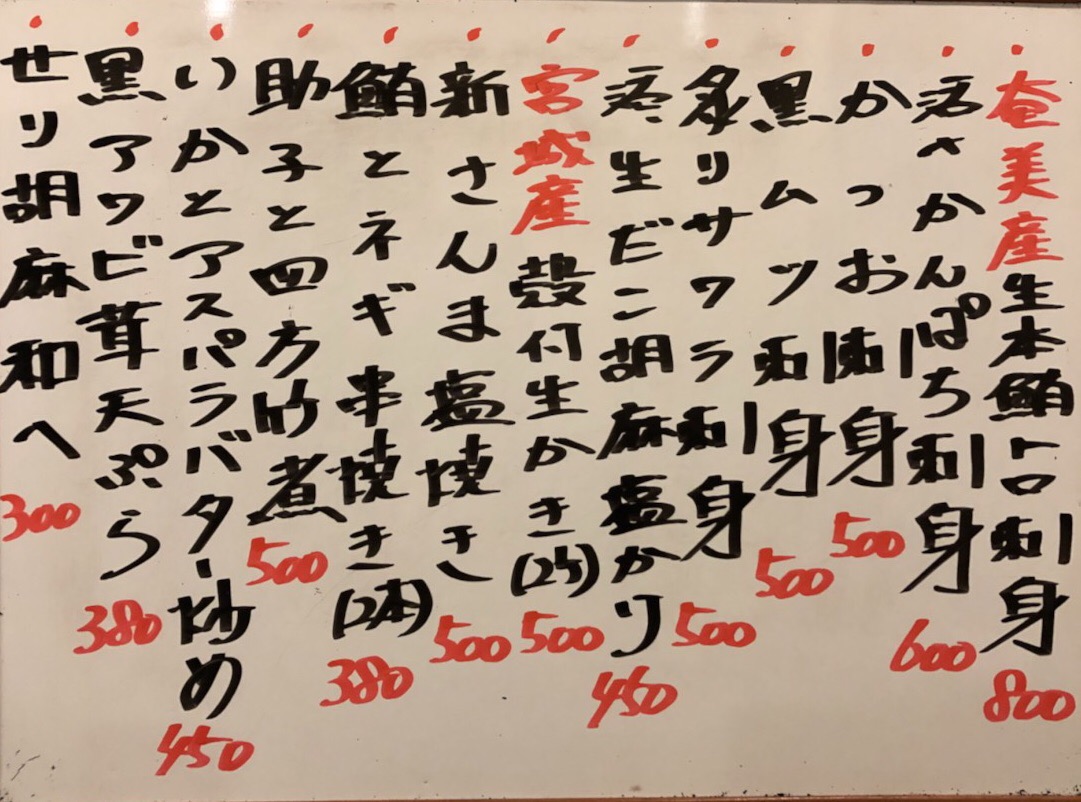 奄美産生本鮪トロ刺身 800
活〆かんぱち刺身 600
かつお刺身 500
黒ムツ刺身 500
炙りサワラ刺身 500
生だこ胡麻塩かり 450
宮城産殻付生かき(2ケ) 500
新さんま塩焼き 500
鮪とネギ串焼き(2本) 380
助子と四方竹煮 500
いかとアスパラバター炒め 450
黒アワビ茸天ぷら 380
せり胡麻和へ 300